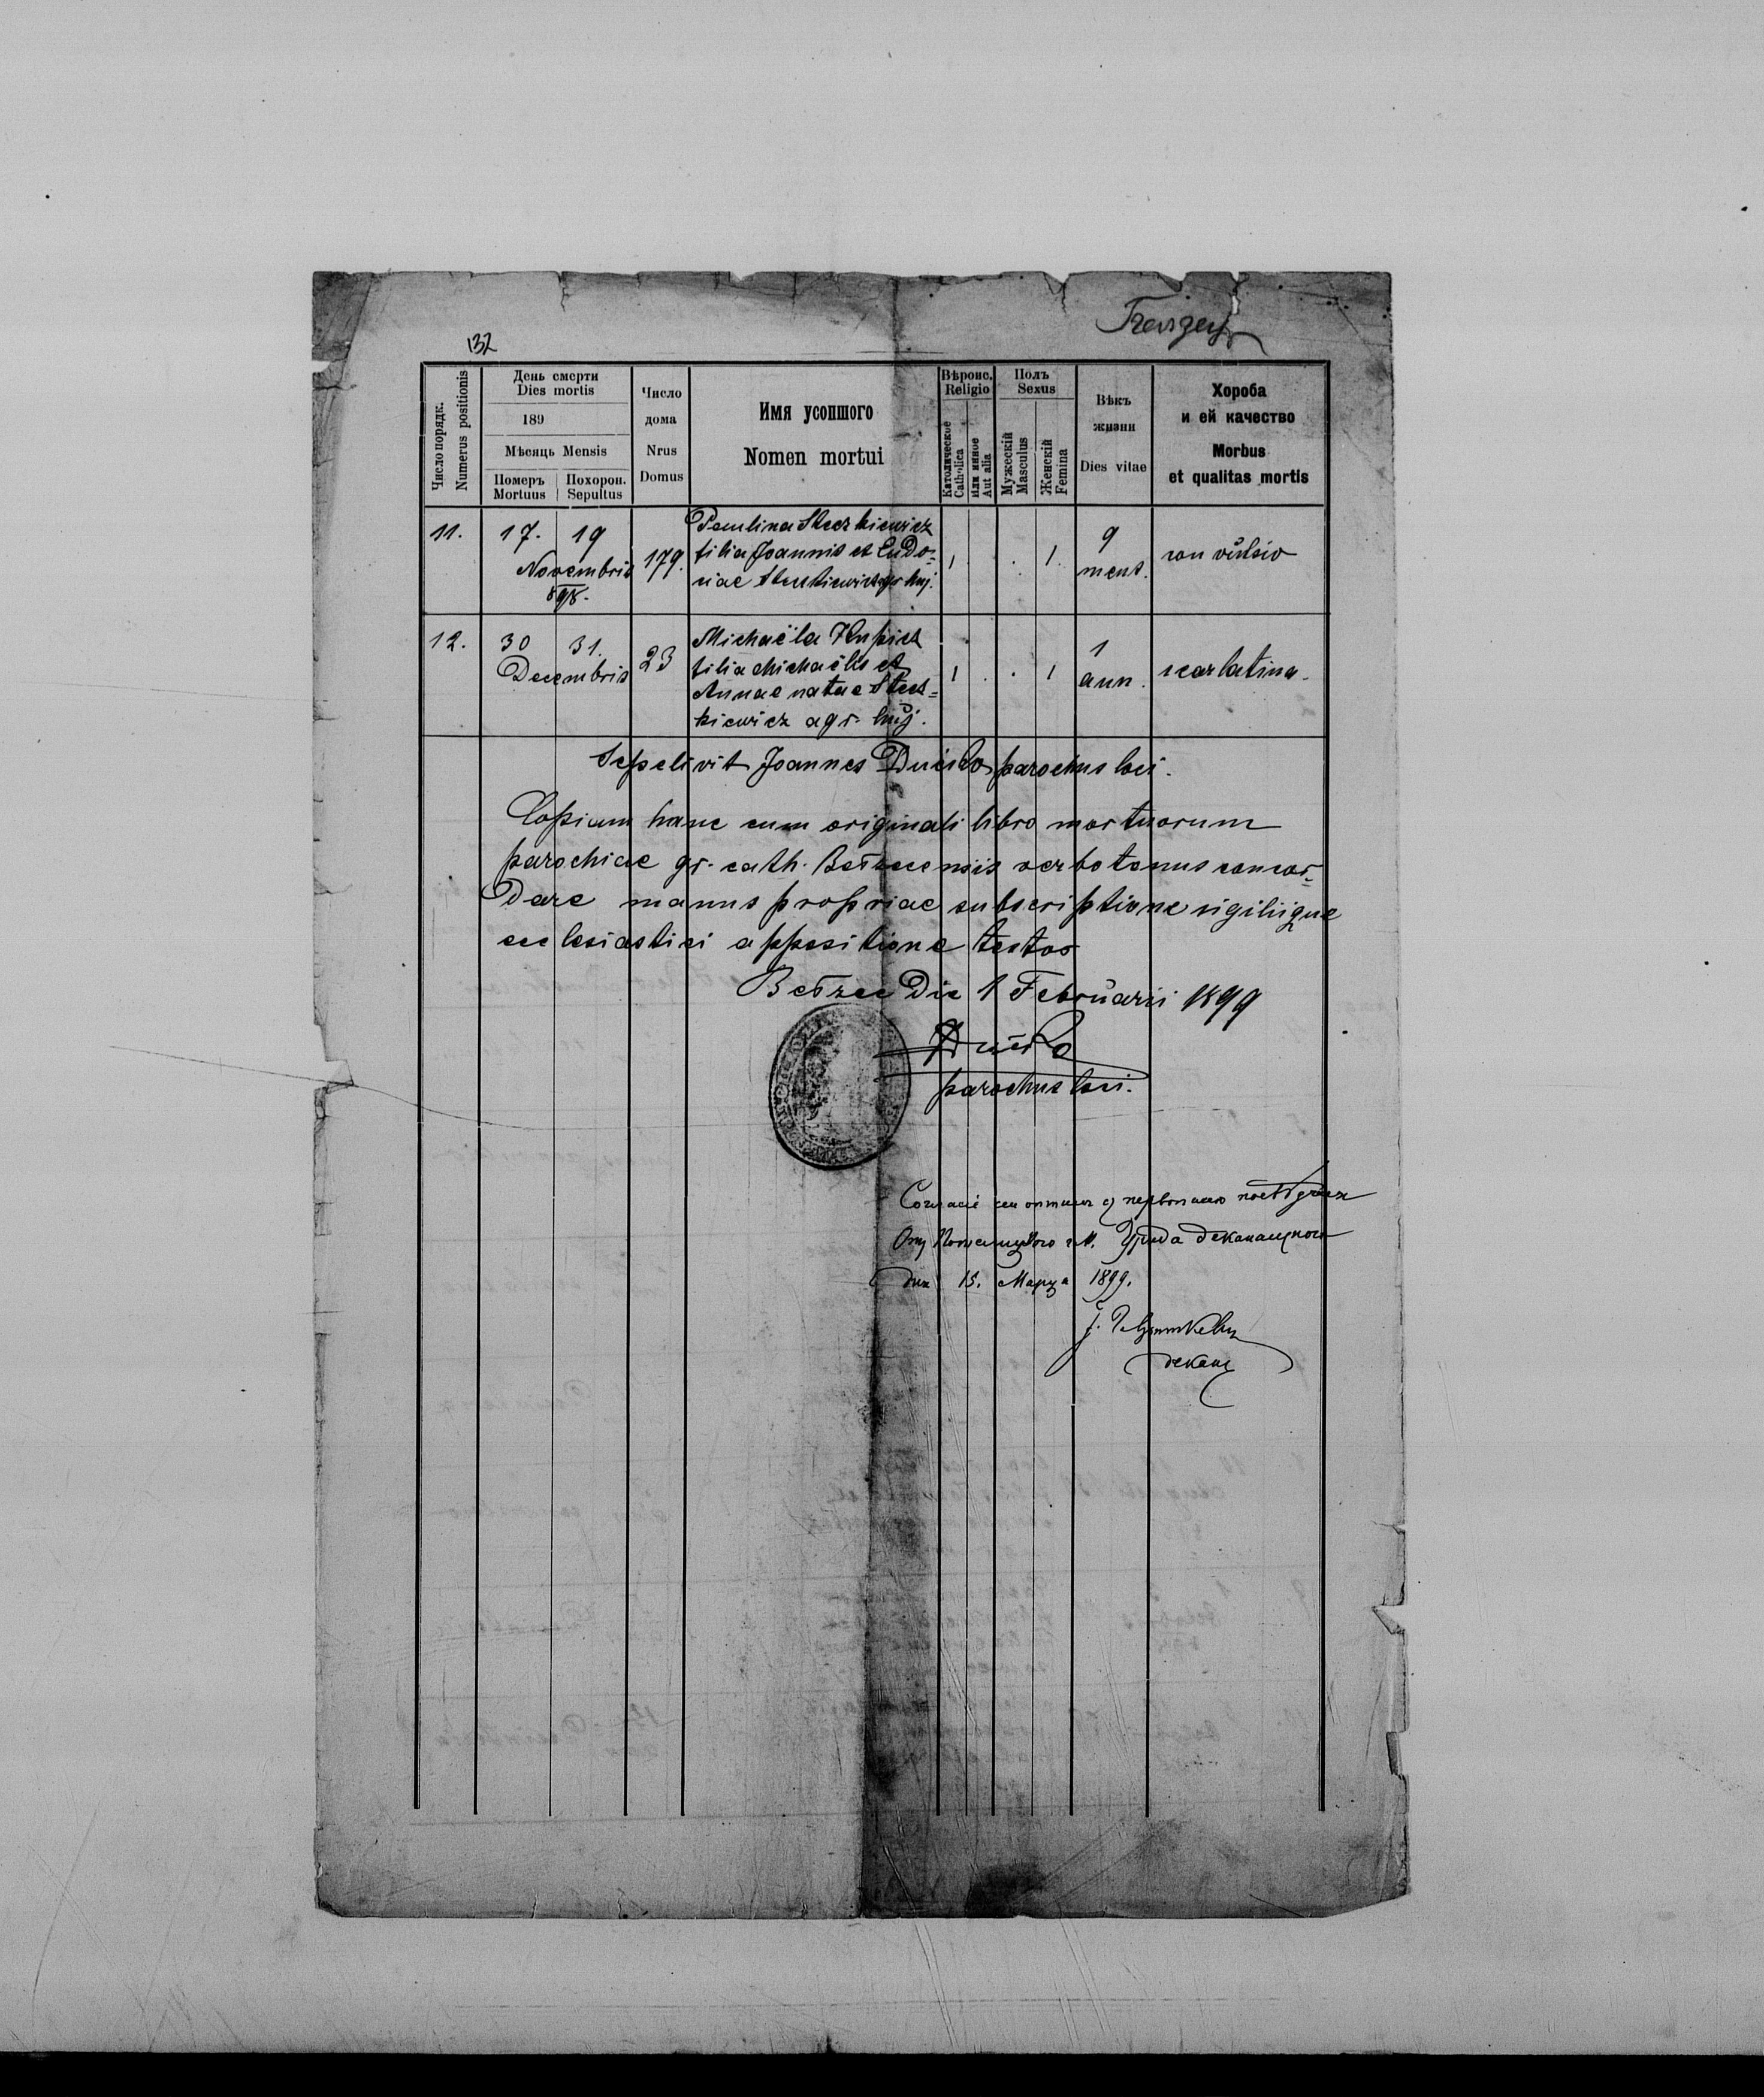 132
Число порядк.
Numerus positionis
День смерти
Dies mortis
189
Мѣсяць Mensis
Померъ
Mortuus
Похорон.
Sepultus
Число
дома
Nrus
Domus
Имя усопшого
Nomen mortui
Вѣроис.
Religio
Католическое
Catholica
или инное
Aut alia
Полъ
Sexus
Мужескій
Masculus
Женскій
Femina
Вѣкъ
жизни
Dies vitae
Хороба
и ей качество
Morbus
et qualitas mortis
11. 17. 19
Novembris
898.
179.
Paulina Steczkiewicz
filia Joannis et Eudo=
ciae Steczkiewicz agr. huj.
1 . . 1.
9
mens.
convulsio
12. 30 31.
Decembris
23
Michaëla
filia Michaëlis et
Annae natae Stecz=
kiewicz agr. huj.
1 . . 1
1
ann.
scarlatina.
Sepelivit Joannes parochus loci.
Copiam hanc cum originali libro mortuorum
parochiae gr. cath. Bełzecensis verbotenus concor=
dare manus propriae subscriptione sigiliique
ecclesiastici appositione testor
Bełzec die 1 Februarii 1899
parochus loci.
Дня 15. Марца 1899.
деканъ